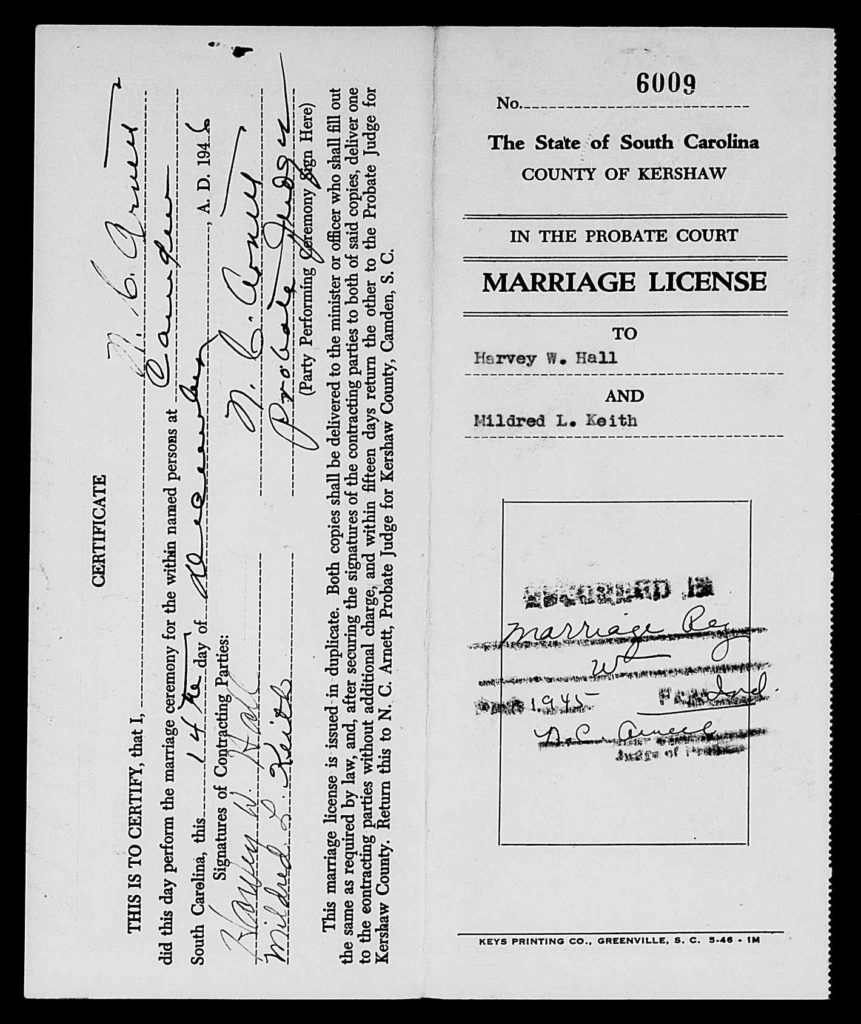 CERTIFICATE
THIS IS TO CERTIFY, that I, N. C. Arnett
did this day perform the marriage ceremony for the within named persons at Camden
South Carolina, this 14th day of December, A. D. 1946
Signatures of Contracting Parties:
Harvey W. Hall N. C. Arnett
Mildred L. Keith Probate Judge
(Party Performing Ceremony Sign Here)
This marriage license is issued in duplicate. Both copies shall be delivered to the minister or officer who shall fill out
the same as required by law, and, after securing the signatures of the contracting parties to both of said copies, deliver one
to the contracting parties without additional charge, and within fifteen days return the other to the Probate Judge for
Kershaw County. Return this to N. C. Arnett, Probate Judge for Kershaw County, Camden, S. C.
No. 6009
The State of South Carolina
COUNTY OF KERSHAW
IN THE PROBATE COURT
MARRIAGE LICENSE
TO
Harvey W. Hall
AND
Mildred L. Keith
RECORDED IN
Marriage Reg
Page 1945
N. C. Arnett
Judge of Probate
KEYS PRINTING CO., GREENVILLE, S. C. 5-46 - 1M